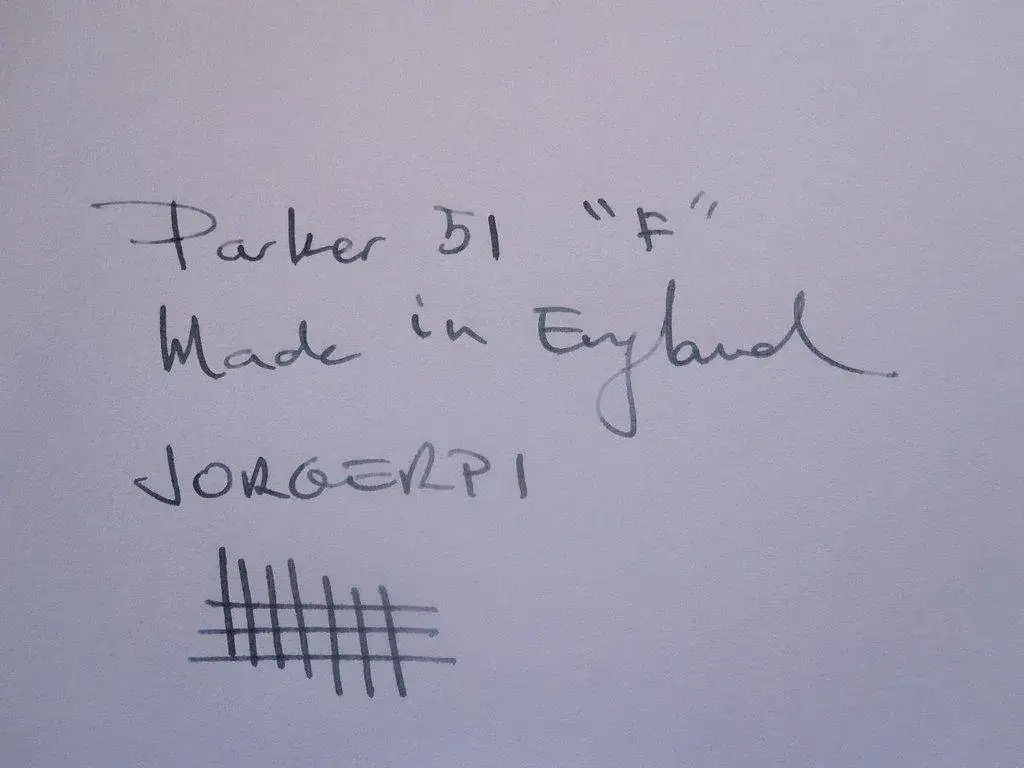 Parker 51 "F"
Made in England
JORGERPI